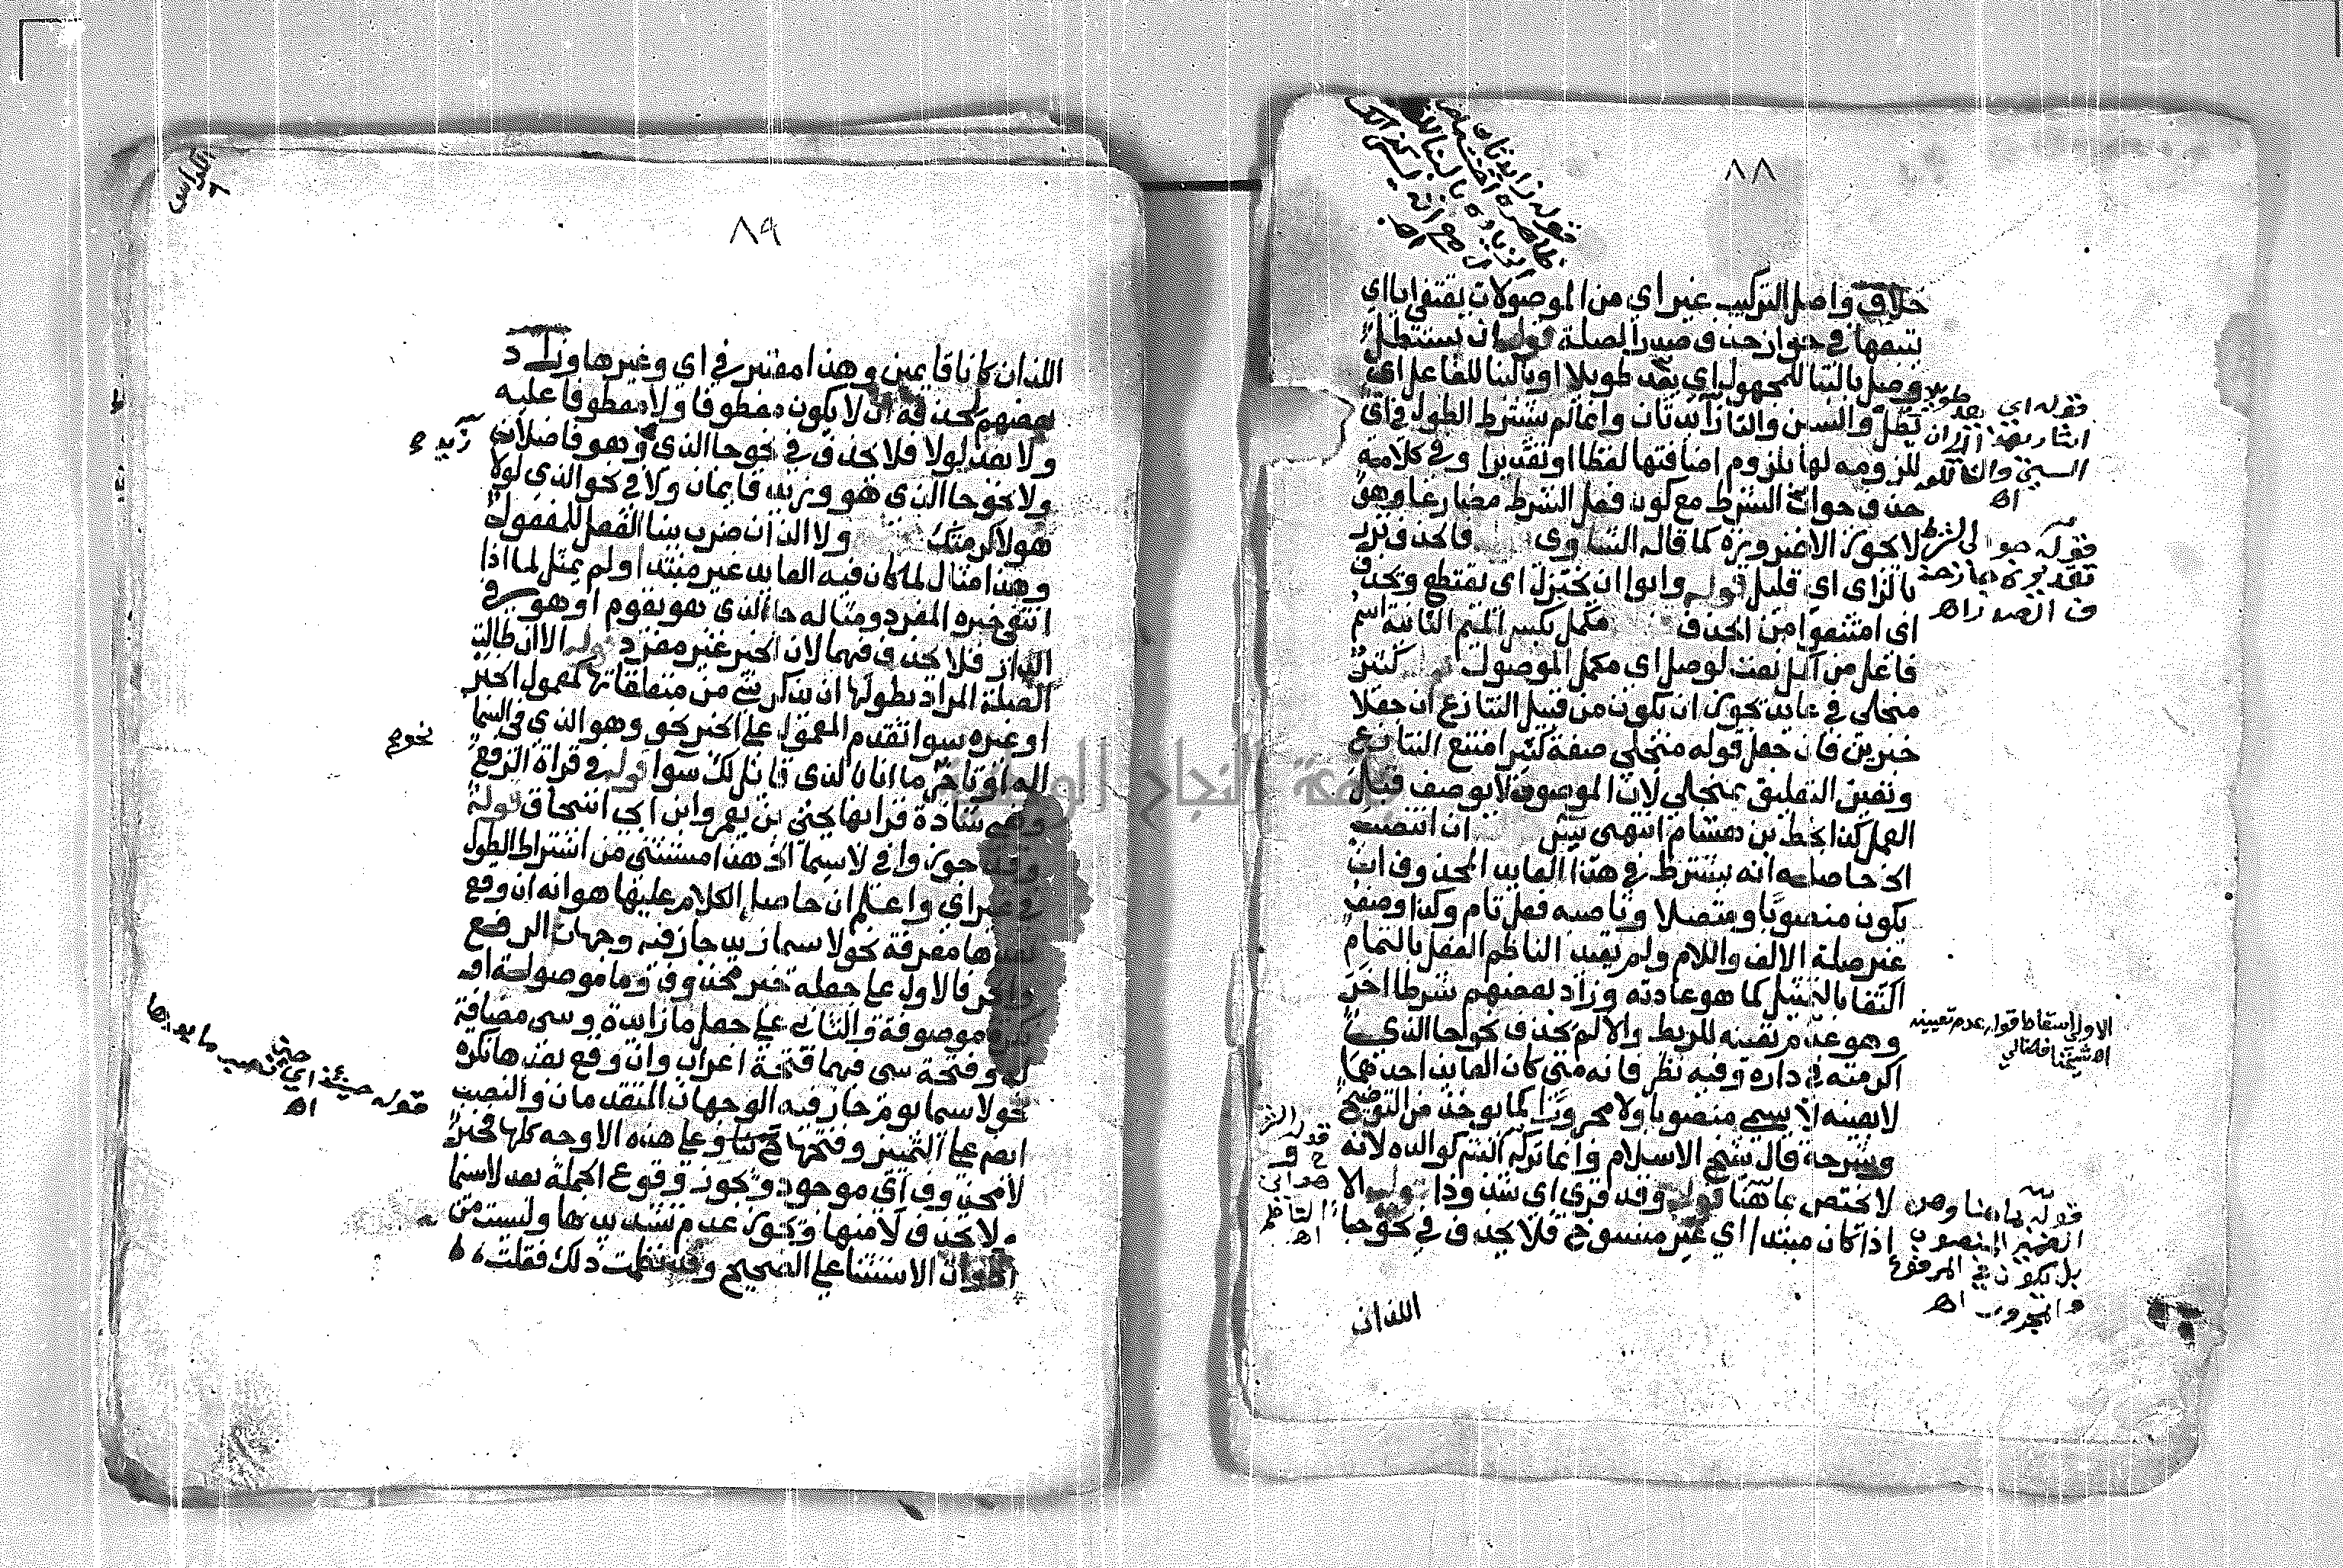 ٨٨
خلاف واصل التركيب غير اي من الموصولات يقتفي ايا اي
يتبعها في جواز حذف صدر الصلة قوله ان يستطل
وصل بالبنا للمجهول اي يعد طويلا او بالبنا للفاعل اي
يطل والسين والتا زايدتان وانما لم يشترط الطول في اي
للزومه لها بلزوم اضافتها لفظا او تقديرا وفي كلامه
حذف جواب الشرط مع كون فعل الشرط مضارعا وهو
لا يجوز الا في ضرورة كما قاله الشاوى فالحذف نزر
بالزاى اي قليل قوله وابوا ان يختزل اى يقتطع ويحذف
اى امتنعوا من الحذف مكمل بكسر الميم الثانية اسم
فاعل من اكمل نعت لوصل اى مكمل الموصول كثير
منجلي في عايد يجوز ان يكون من قبيل التنازع ان جعلا
خبرين فان جعل قوله منجلي صفة لكثير امتنع التنازع
وتعين التعليق بمنجلي لان الموصوف لا يوصف قبل
العمل كذا بخط بن هشام انتهى يس ان انتصب
الخ حاصله انه يشترط في هذا العايد المحذوف ان
يكون منصوبا ومتصلا وناصبه فعل تام وكذا وصف
غير صلة الالف واللام ولم يقيد الناظم الفعل بالتمام
اكتفا بالتمثيل كما هو عادته وزاد بعضهم شرطا اخر
وهو عدم تعينه للربط والا لم يحذف نحو جا الذي
اكرمته في داره وفيه نظر فانه متى كان العايد احدهما
لا بعينه لا يسمى منصوبا ولا مجرورا كما يوخذ من التوضيح
وشرحه قال شيخ الاسلام وانما تركه كنترك والده لانه
لا يختص بما هنا قوله وقد قري اى شذوذا قوله الا
اذا كان مبتدا اي غير منسوخ فلا يحذف في نحو جا
اللذان
قوله اي يعد طويلا
اشار بهذا الى ان
السين والتا للعد
اه
ف الصدر اه
الاولى اسقاط قوله عدم تعينه
اه شيخنا فضالي
قوله بما هنا وهو
الضمير المنصوب
بل يكون في المرفوع
والمجرور اه
٨٩
الكراس
٦
اللذان كانا قايمين وهذا معتبر في اى وغيرها وزاد
بعضهم لحذفه ان لا يكون معطوفا ولا معطوفا عليه
ولا بعد لولا فلا يحذف في نحو جا الذى وهو فاضلان
ولا نحو جا الذي هو وزيد قايمان ولا في نحو الذى لولا
هو لاكرمتك ولا اللذان ضرب ببنا الفعل للمفعول
وهذا مثال لما كان فيه العايد غير مبتدا ولم يمثل لما اذا
انتفى خبره المفرد ومثاله جا الذى هو يقوم او هو في
الدار فلا يحذف فيهما لان الخبر غير مفرد قوله الا ان طالت
الصلة المراد بطولها ان يذكر شي من متعلقاتها كمعمول الخبر
او غيره سوا تقدم المعمول على الخبر نحو وهو الذى في السما
اله او تاخر ما انا بالذى قائل لك سوا قوله في قراة الرفع
وهي شاذة قرا بها يحيى بن يعمر وابن ابي اسحاق قوله
وقد جوزوا في لاسيما الخ هذا مستثنى من اشتراط الطول
في غير اي واعلم ان حاصل الكلام عليها هو انه ان وقع
بعدها معرفة نحو لا سيما زيد جاز فيه وجهان الرفع
والجر فالاول على جعله خبر محذوف وما موصولة او
نكرة موصوفة والثاني على جعل ما زايدة وسي مضافة
له وفتحة سي فيهما فتحة اعراب وان وقع بعدها نكرة
نحو لا سيما يوم جاز فيه الوجهان المتقدمان والنصب
ايضا على التمييز وفتحها ح بنا وعلى هذه الاوجه كلها فخبر
لا محذوف اي موجود ويجوز وقوع الجملة بعد لاسيما
ولا تحذف لا منها ويجوز عدم تشديدها وليست من
ادوات الاستثنا على الصحيح وقد نظمت ذلك فقلت
زيد
نحو
قوله حينئذ اي حين نصب ما بعدها
اه